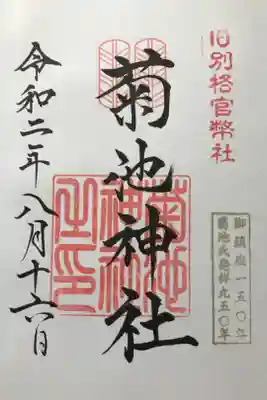 旧別格官幣社
御鎮座一五〇年
菊池氏発祥九五〇年
菊池神社
菊池神社之印
令和二年八月十六日